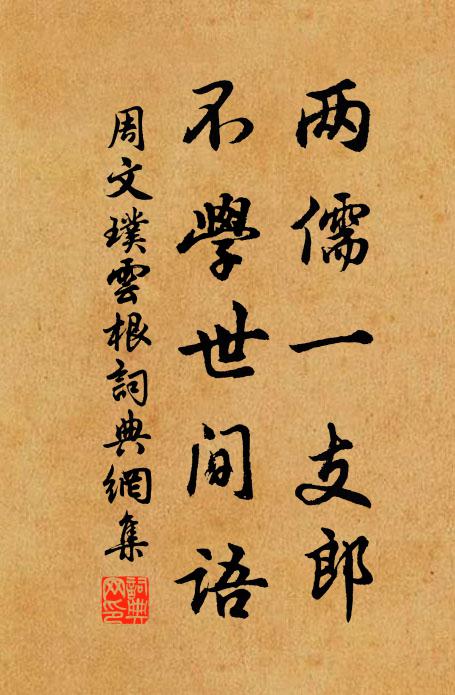 两儒一支郎
不學世間語
周文璞雲根詞典網集
詞典网印